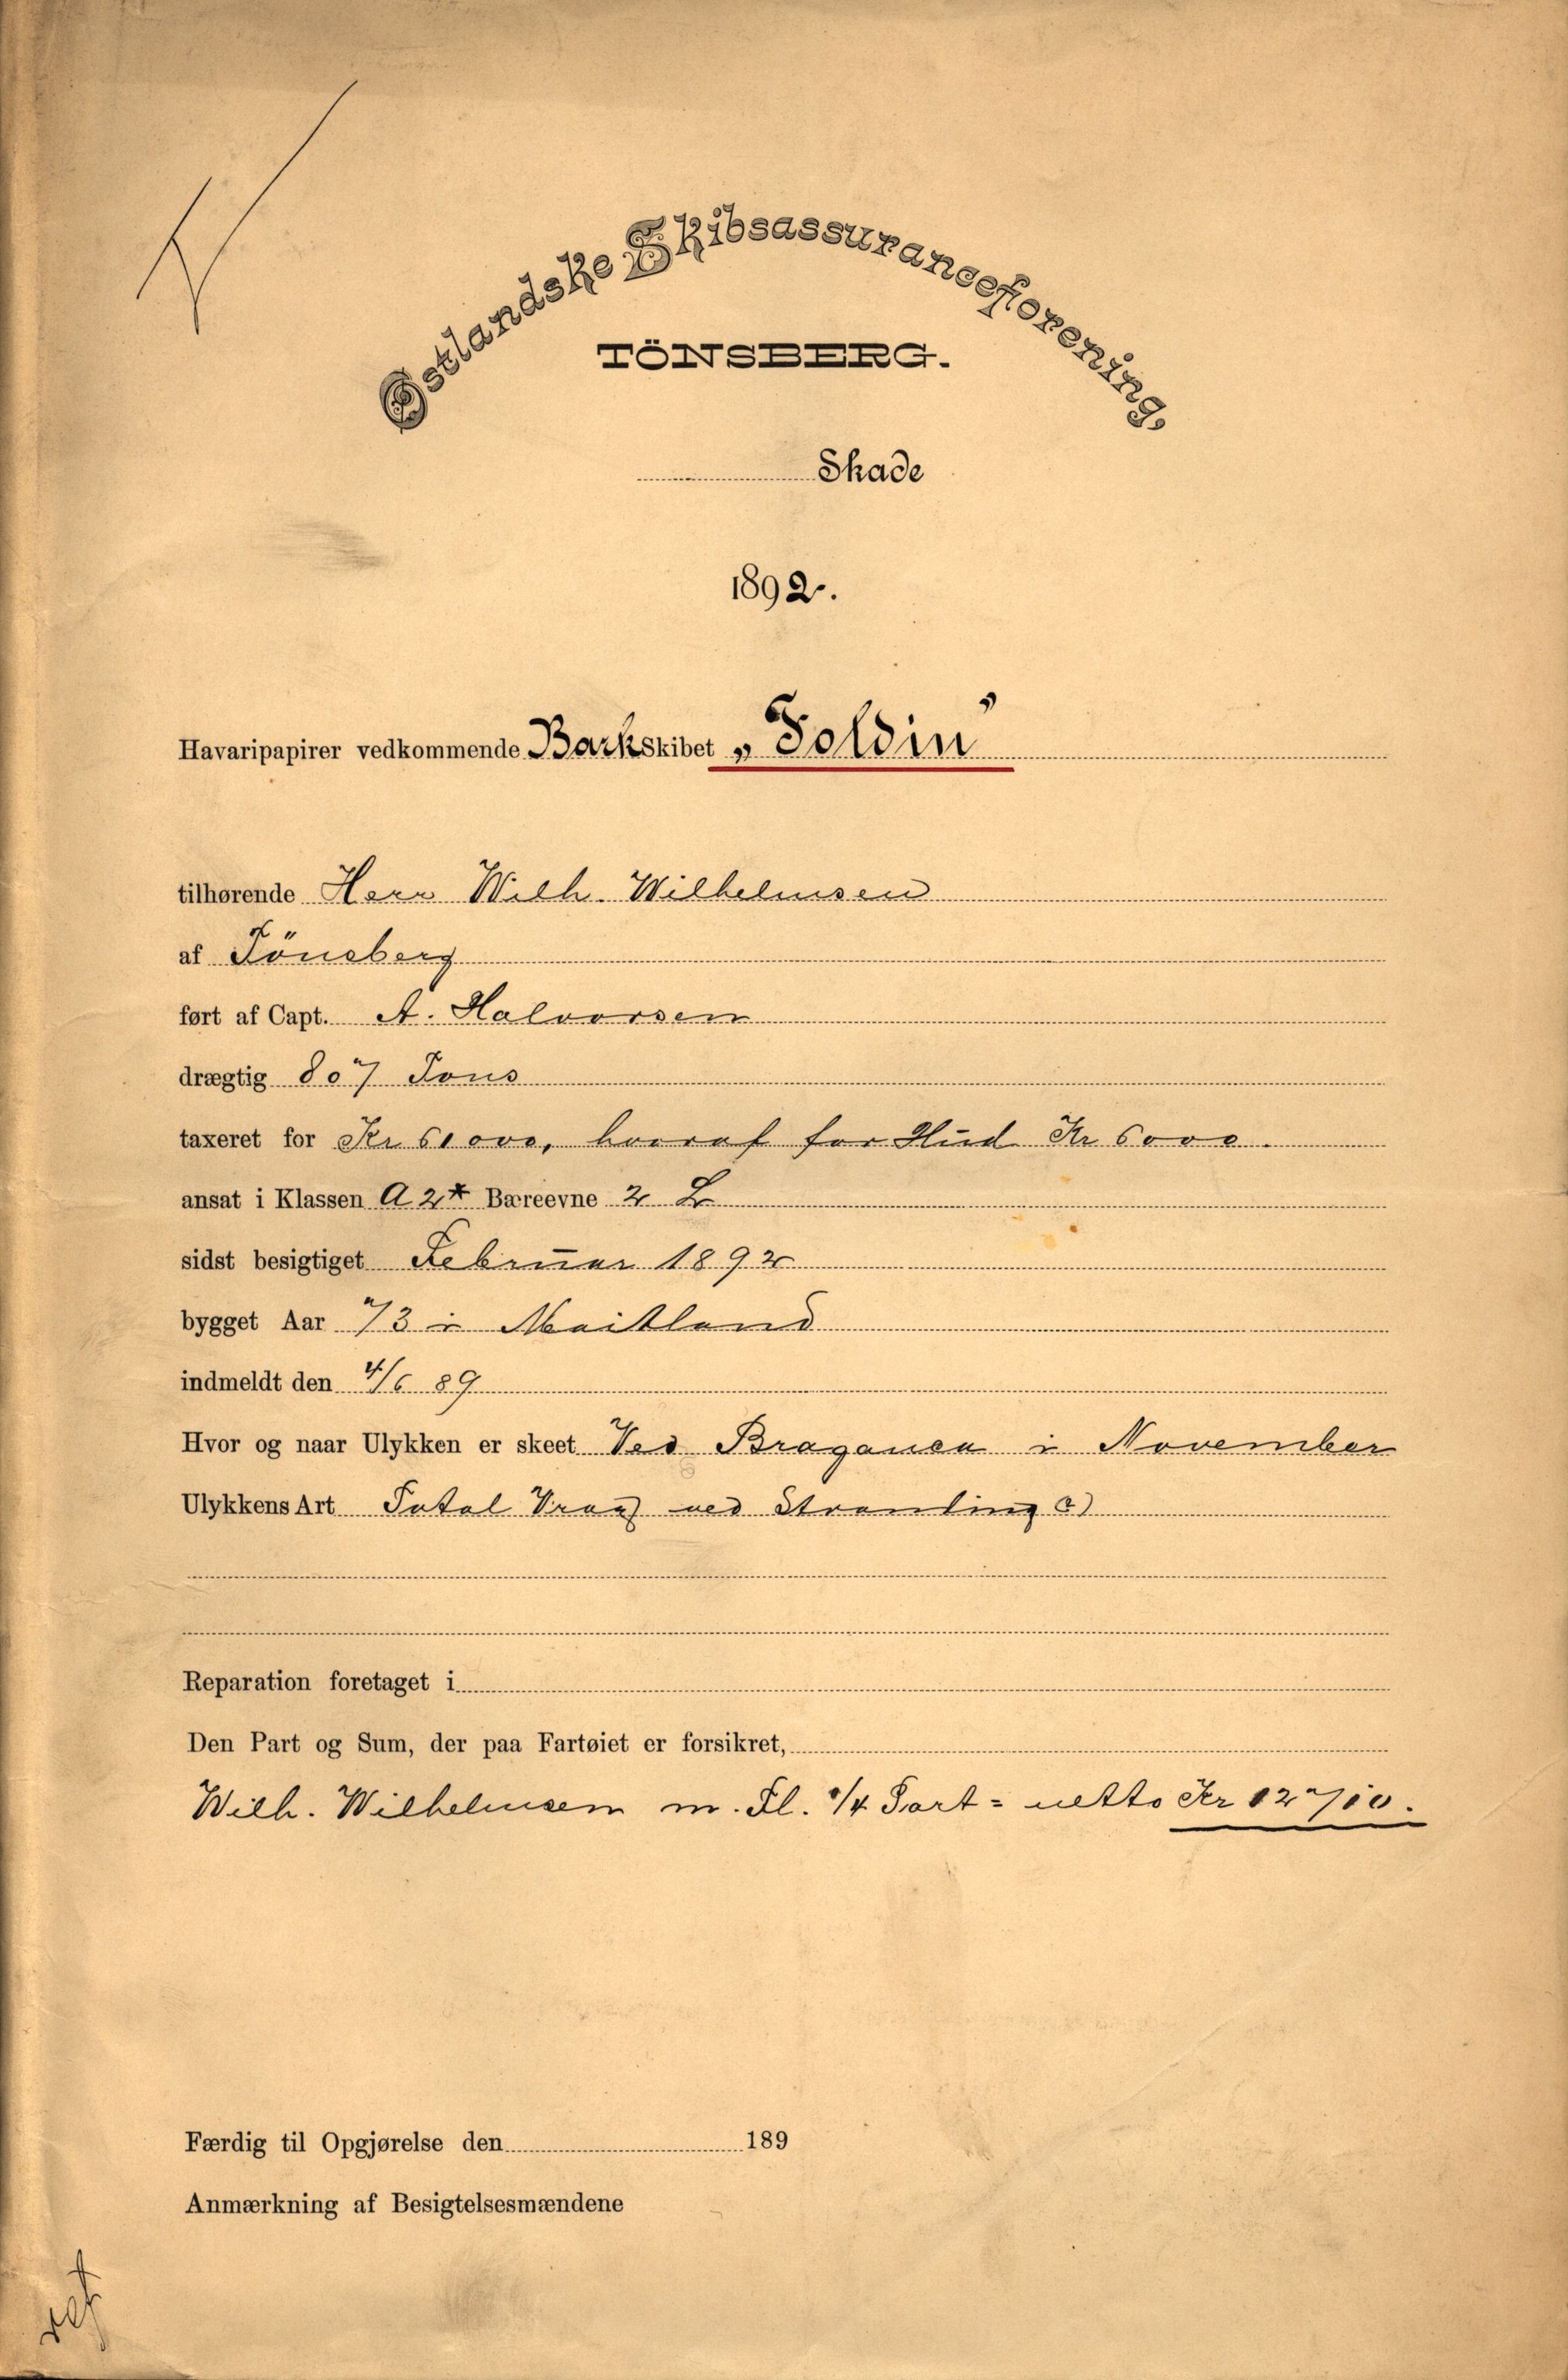 Østlandske Skibsassuranceforening,
TÖNSBERG.
Skade
1892.
Havaripapirer vedkommende Barkskibet „Soldin"
tilhørende Herr Wilh. Wilhelmsen
af Tönsberg
ført af Capt. A. Halvorsen
drægtig 807 Tons
taxeret for Kr 61000, hvoraf for Hud Kr 6000.
ansat i Klassen A 2* Bæreevne 2 L
sidst besigtiget Februar 1892
bygget Aar 73 i Maitland
indmeldt den 4/6 89
Hvor og naar Ulykken er skeet Ved Braganca i November
Ulykkens Art Total Vrag ved Stranding
Reparation foretaget i
Den Part og Sum, der paa Fartøiet er forsikret,
Wilh. Wilhelmsen m. Fl. 1/4 Part = netto Kr 12710.
Færdig til Opgjørelse den 189
Anmærkning af Besigtelsesmændene